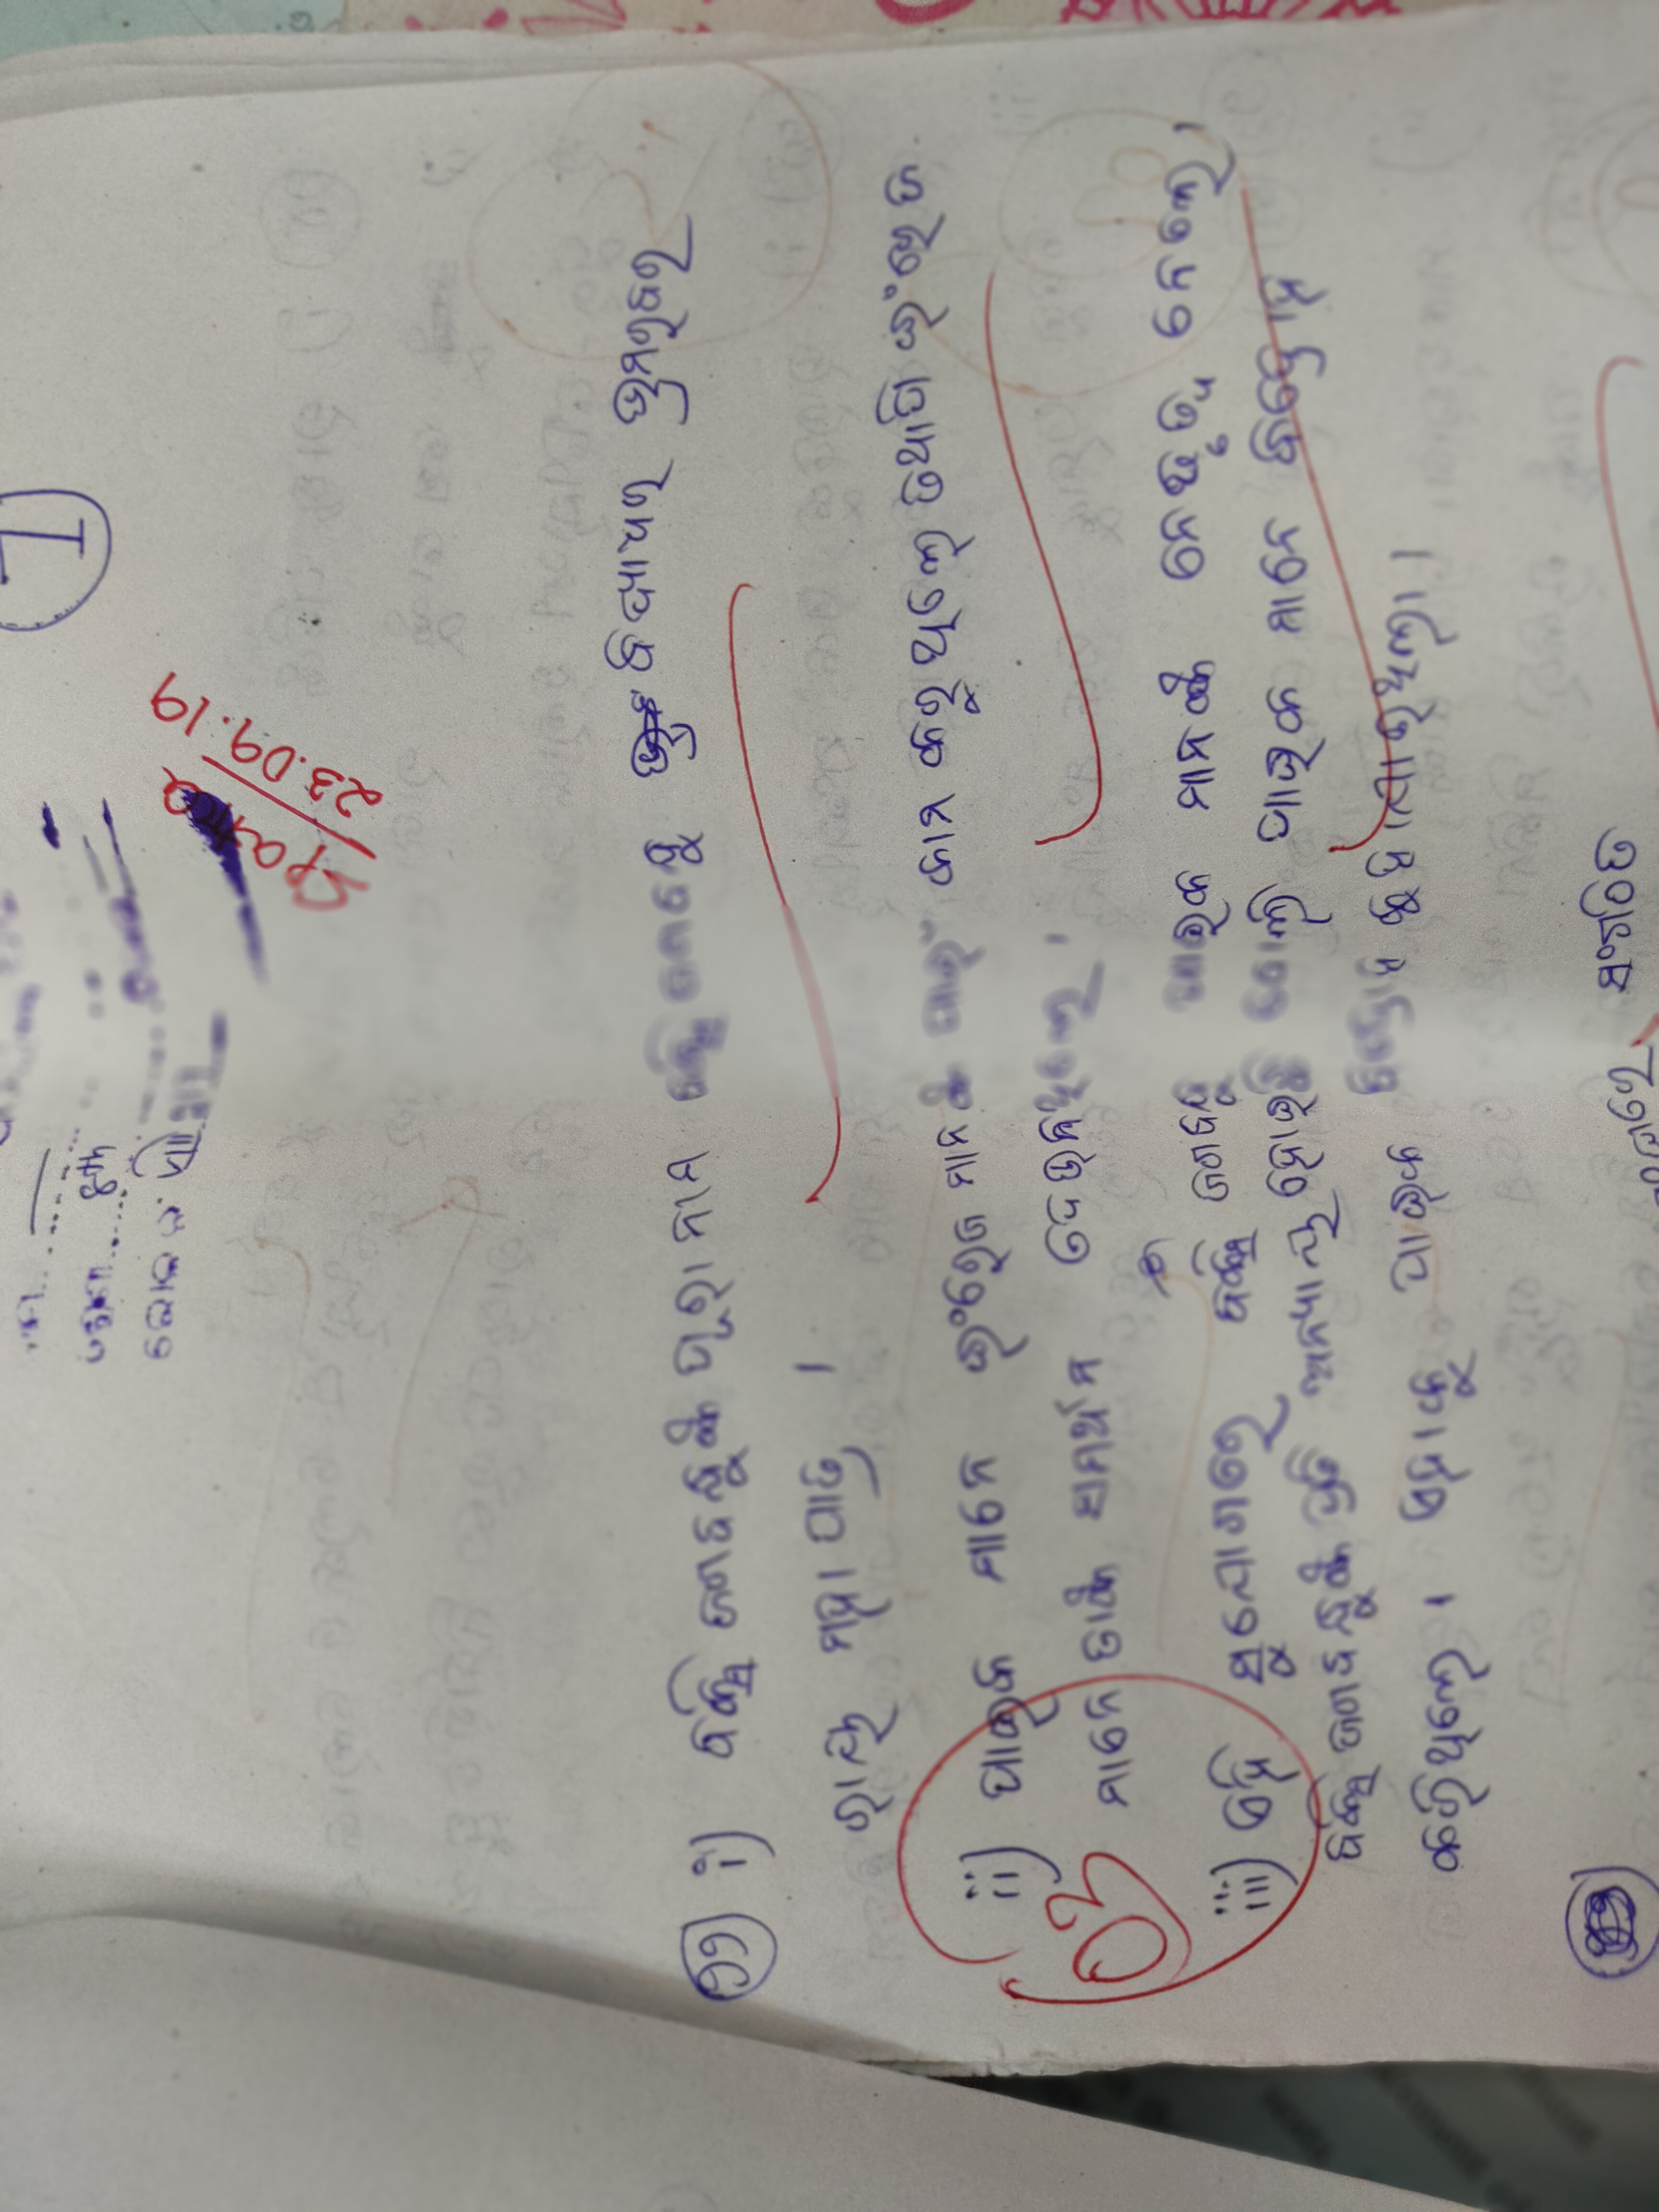 8th
Spatra
23.09.19
୨୨) i) ବକ୍ସି ଜଗବନ୍ଧୁଙ୍କ ପୂରା ନାମ ବିଦ୍ୟାଧର ଭ୍ରମରବର
ରାୟ ମହାପାତ୍ର ।
ii) ପାଇକ ମାନେ ଇଂରେଜ ମାନଙ୍କ ପାଇଁ କାମ କରୁଥିଲେ ତଥାପି ଇଂରେଜ
ମାନେ ତାଙ୍କ ସମର୍ଥନ
03
iii) ଏହି ସୁଯୋଗରେ ବକ୍ସି ଜଗବନ୍ଧୁ ପାଇକ ମାନଙ୍କ ନେତୃତ୍ୱ ନେଲେ ।
ବକ୍ସି ଜଗବନ୍ଧୁଙ୍କ ପ୍ରତି ଅନ୍ୟାୟ ହୋଇଛି ବୋଲି ପାଇକ ମାନେ ବିଦ୍ରୋହ
କରିଥିଲେ । ଏହାକୁ ପାଇକ ବିଦ୍ରୋହ କୁହାଯାଇଥିଲା ।
ସଂଗଠିତ